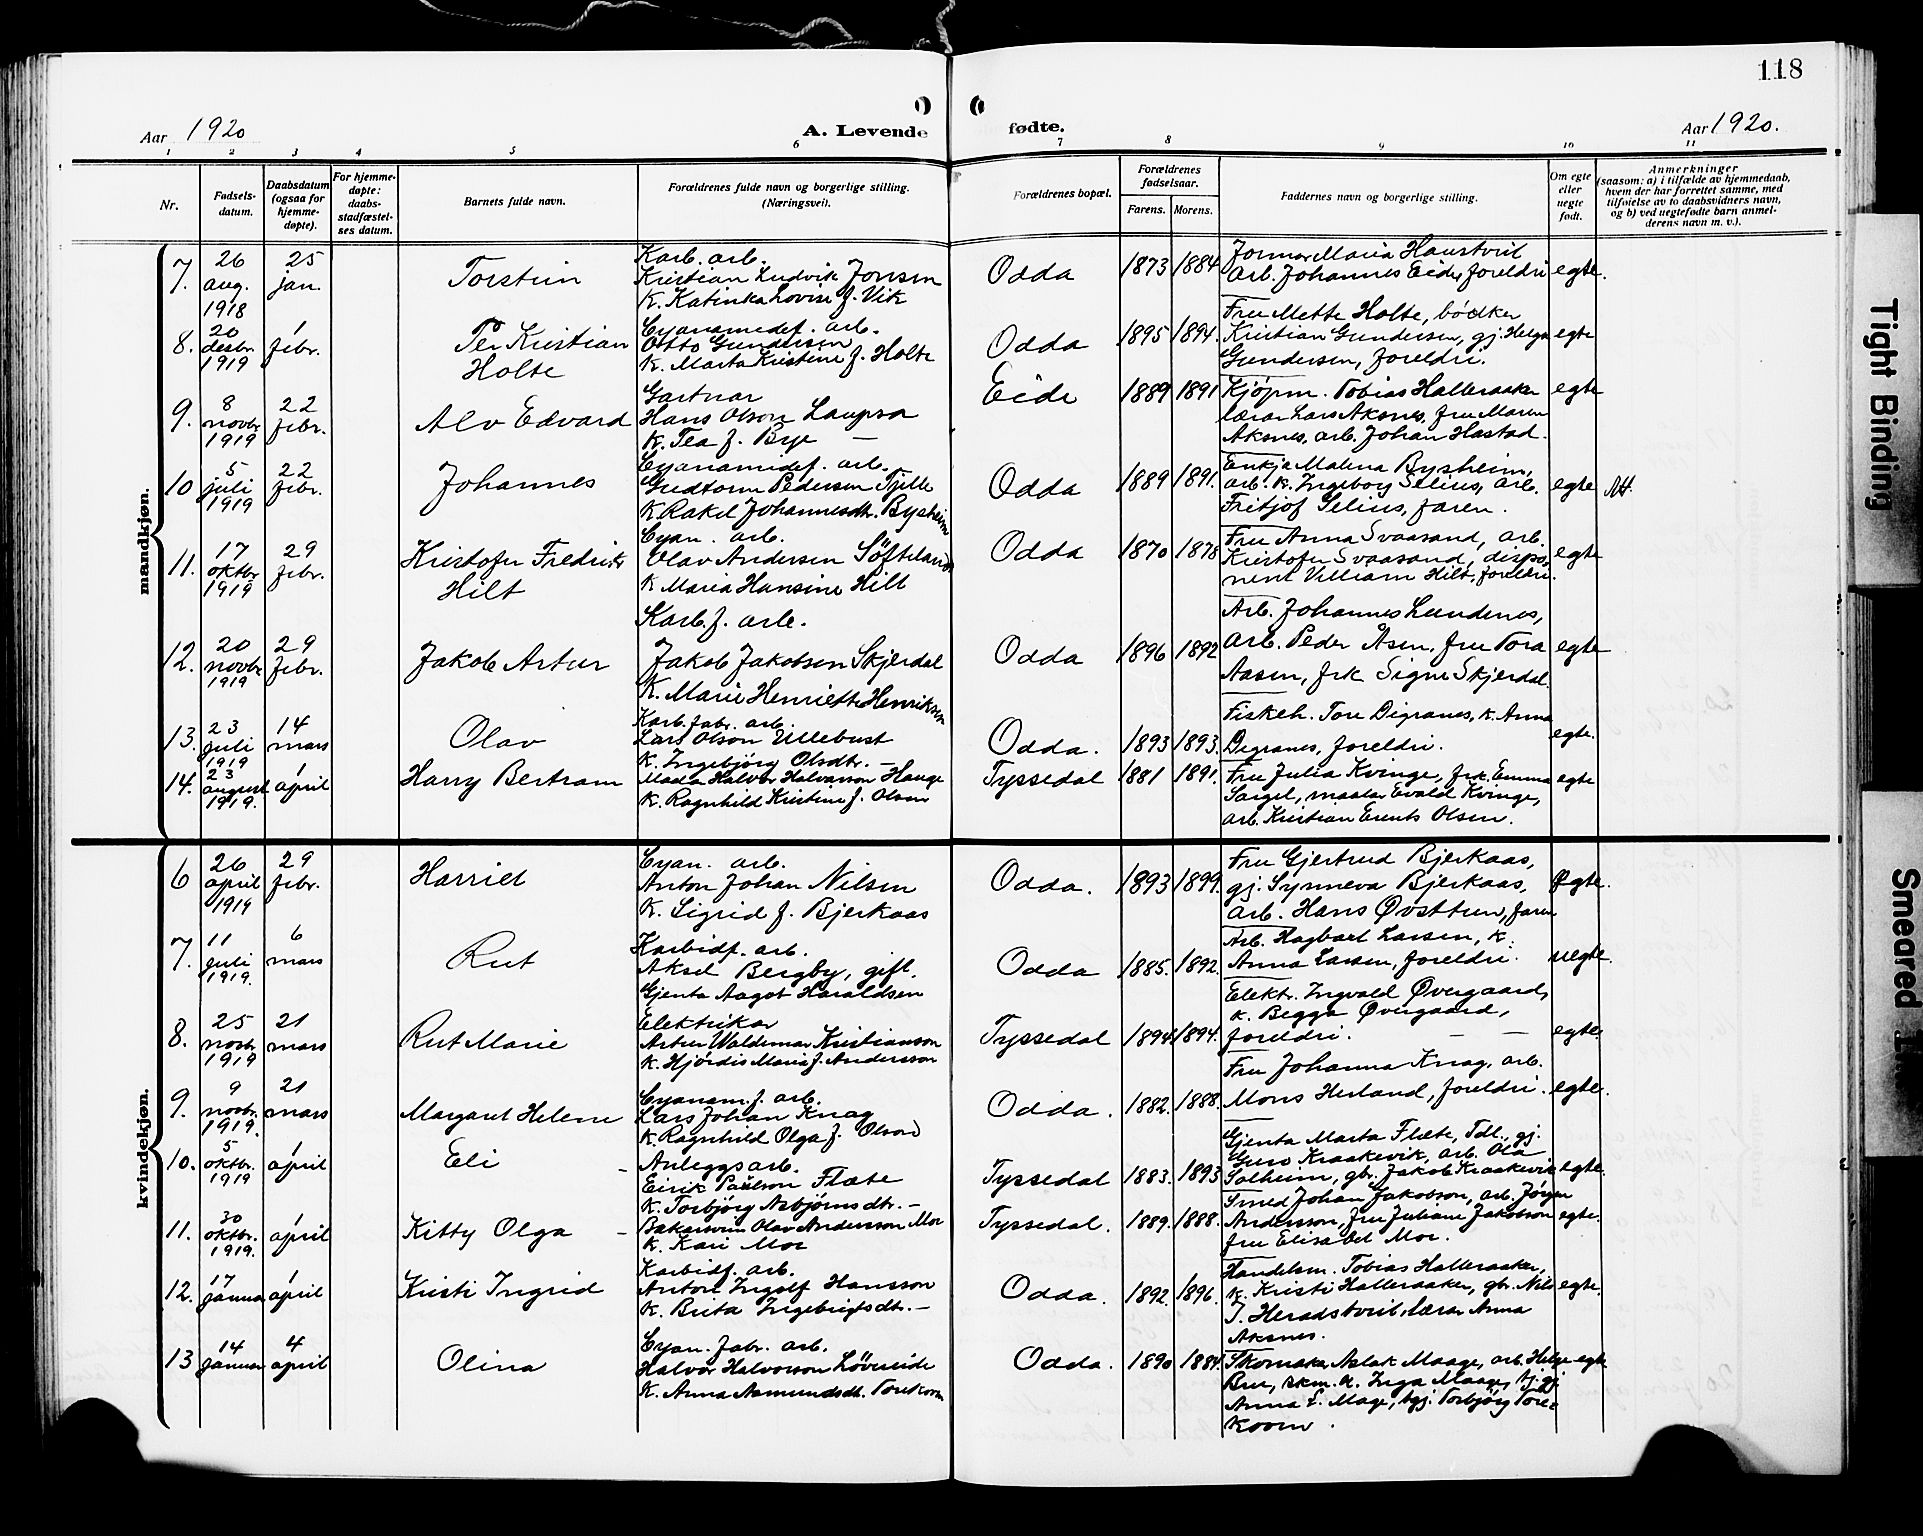 118
Aar 1920
A. Levende fødte.
Aar 1920.
1 2 3 4 5 6 7 8 9 10 11
Nr.
Fødsels-
datum.
Daabsdatum
(ogsaa for
hjemme-
døpte).
For hjemme-
døpte:
daabs-
stadfæstel-
ses datum.
Barnets fulde navn.
Forældrenes fulde navn og borgerlige stilling.
(Næringsvei).
Forældrenes bopæl.
Forældrenes
fødselsaar.
Farens. Morens.
Faddernes navn og borgerlige stilling.
Om egte
eller
uegte
født.
Anmerkninger
(saasom: a) i tilfælde av hjemmedaab,
hvem der har forrettet samme, med
tilføielse av to daabsvidners navn,
og b) ved uegtefødte barn anmel-
derens navn m. v.).
mandkjøn.
7. 26 aug. 1918
25 jan.
Torstein
Karb. arb.
Kristian Ludvik Jonsen
K. Katinka Lovise f. Vik
Odda 1873 1884
Maria Haustveit
Arb. Johannes Eide, foreldri
egte.
8. 20 desbr. 1919
1 febr.
Per Kristian
Holte
Cyanamidef. arb.
Otto Gundersen
K. Marta Kristine f. Holte
Odda 1895 1894.
Fru Mette Holte, bødker
Kristian Gundersen, gj. Helga
Gundersen, foreldri.
egte
9. 8 novbr. 1919
22 febr.
Alv Edvard
Gartnar
Hans Olson Laupsa
K. Tea f. Brye —
Eide 1889 1891
Kjøpm. Tobias Halleraaker
lærar Lars Aksnes, fru Maren
Aksnes, arb. Johan Hastad.
egte
10 5 juli 1919
22 febr.
Johannes
Cyanamidef. arb.
Gudtorm Pedersen Tjelle
K. Rakel Johannesdtr. Bysheim
Odda 1889 1891.
Enkja Malena Bysheim,
arb. k. Ingeborg Selius, arb.
Fritjof Selius, faren.
egte Att.
11. 17 oktbr. 1919
29 febr.
Kristofer Fredrik
Hilt
Cyan. arb.
Olav Andersen Søfteland
K. Maria Hansine Hilt
Odda 1870 1878
Fru Anna Svaasand, arb.
Kristofer Svaasand, dispo-
nent Villiam Hilt, foreldri.
egte
12. 20 novbr. 1919
29 febr.
Jakob Artur
Karb. f. arb.
Jakob Jakobsen Skjerdal
K. Marie Henriette Henriksen
Odda 1896 1892
Arb. Johannes Lundenes,
Arb. Peder Åsen, fru Tora
Aasen, frk Signe Skjerdal.
egte
13. 23 juli 1919
14 mars
Olav
Karb. fabr. arb.
Lars Olson Ullebust
K. Ingebjørg Olsdtr. —
Odda. 1893 1893.
Fiskeh. Tore Digranes, k. Anna
Digranes, foreldri.
egte.
14. 23 august 1919.
1 april
Harry Bertram
Halvor Halvorson Hauge
K. Ragnhild Kristine f. Olsen
Tyssedal 1881 1891.
Fru Julia Kvinge, frk. Emma
Sørgel, maalar Evald Kvinge,
arb. Kristian Olsen.
egte
kvindekjøn.
6 26 april 1919
29 febr.
Harriet
Cyan. arb.
Anton Johan Nilsen
K. Sigrid f. Bjerkaas
Odda. 1893 1899.
Fru Gjertrud Bjerkaas,
gj. Synneva Bjerkaas,
arb. Hans Øvsttun, faren
egte.
7. 11 juli 1919.
6 mars
Rut
Karbidf. arb.
Aksel Bergby, gift.
Gjenta Aagot Haraldsen
Odda 1885. 1892.
Arb. Hagbart Larsen, k.
Anna Larsen, foreldri.
uegte.
8. 25 novbr. 1919
21 mars
Rut Marie
Elektrikar
Artur Waldemar Kristianson
K. Hjørdis Maria f. Andersson
Tyssedal 1894 1894.
Elektr. Ingvald Øvergaard,
k. Begga Øvergaard,
foreldri. — —
egte.
9. 9 novbr. 1919.
21 mars
Margaret Helene
Cyanam. f. arb.
Lars Johan Knag
K. Ragnhild Olga f. Olson
Odda. 1882. 1888.
Fru Johanna Knag, arb.
Mons Herland, foreldri.
egte.
10. 5 oktbr. 1919
1 april
Eli –
Anleggsarb.
Eirik Paulson Flæte
K. Torbjørg Asbjørnsdtr. —
Tyssedal 1883. 1893
Gjenta Marta Flæte, Tdl., gj.
Guro Kraakevik, arb. Ola
Solheim, gbr. Jakob Kraakevik
egte.
11. 30 oktbr. 1919.
1 april
Kitty Olga –
Bakarsvein Olav Andersson Mor
K. Kari Mor
Tyssedal. 1889. 1888.
Smed Johan Jakobson, arb. Jørgen
Andersson, fru Juliane Jakobson
fru Elisabet Mor.
egte.
12. 17 januar
1 april
Kristi Ingrid
Karbidf. arb.
Anton Ingolf Hansson
K. Brita Ingebrigtsdtr. —
Odda. 1892. 1896.
Handelsm. Tobias Halleraaker,
k. Kristi Halleraaker, gbr. Nils
J. Heradstveit, lærar Anna
Aksnes.
egte.
13 14 januar
4 april
Olina
Cyan. fabr. arb.
Halvor Halvorson Løvereide
K. Anna Asmundsdt. Torekoven
Odda. 1890 1884.
Skomaker Aslak Maage, arb. Helge
Bru, skm. k. Inga Maage, tj. gj.
Anna L. Mage, hgj. Torbjørg Tore-
koven.
egte
Tight Binding
Smeared